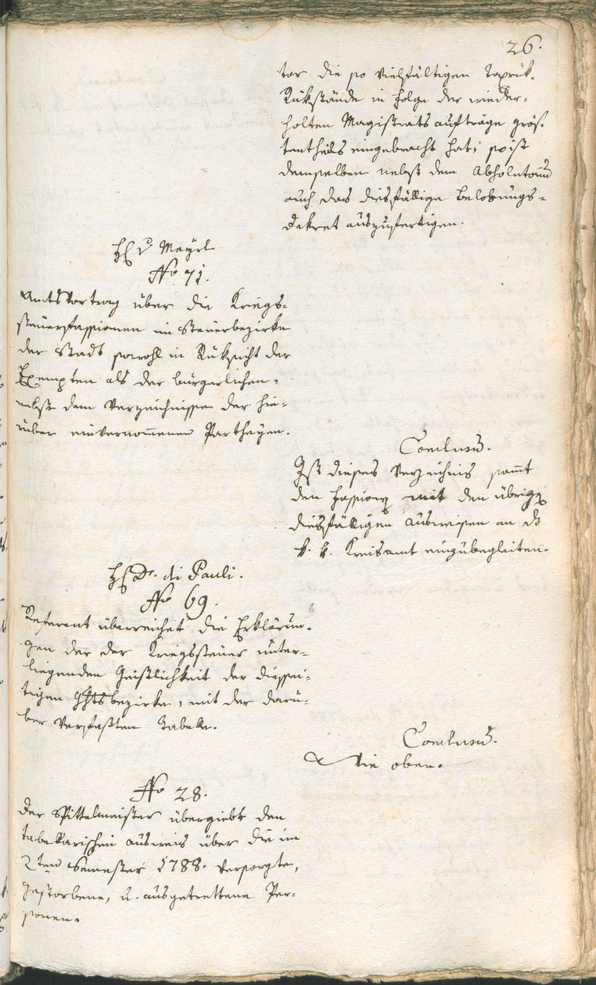 26.
tor die so vielfältigen Taprük-
Rükstände in Folge der wieder-
holten Magistratsaufträge grös-
tentheils eingebracht hat; so ist
demselben nebst dem Absolutorium
auch das diesfällige Belobungs-
Dekret auszufertigen.
H: v Mayrl.
No 71.
Amtsvortrag über die Kriegs-
steuerfassionen im Steuerbezirke
der Stadt sowohl in Rüksicht der
Exempten als der bürgerlichen,
nebst dem Verzeichnissen der hie-
rüber einvernommenen Partheyen.
Conclusum.
Ist dieses Verzeichnis sammt
den Fassionen mit den übrigen
diesfälligen Ausweisen an das
k. k. Kreisamt einzubegleiten.
H: Dr. di Pauli.
No 69.
Referent überreichet die Erklärun-
gen der der Kriegssteuer unter-
liegenden Geistlichkeit der diessei-
tigen Ghtsbezirke, mit der darü-
ber verfaßten Tabelle.
Conclusum.
Wie oben.
No 28.
Der Spittelmeister übergiebt den
tabellarischen Ausweis über die im
2ten Semester 1788. versorgte,
gestorbene, u. ausgetrettene Per-
sonen.